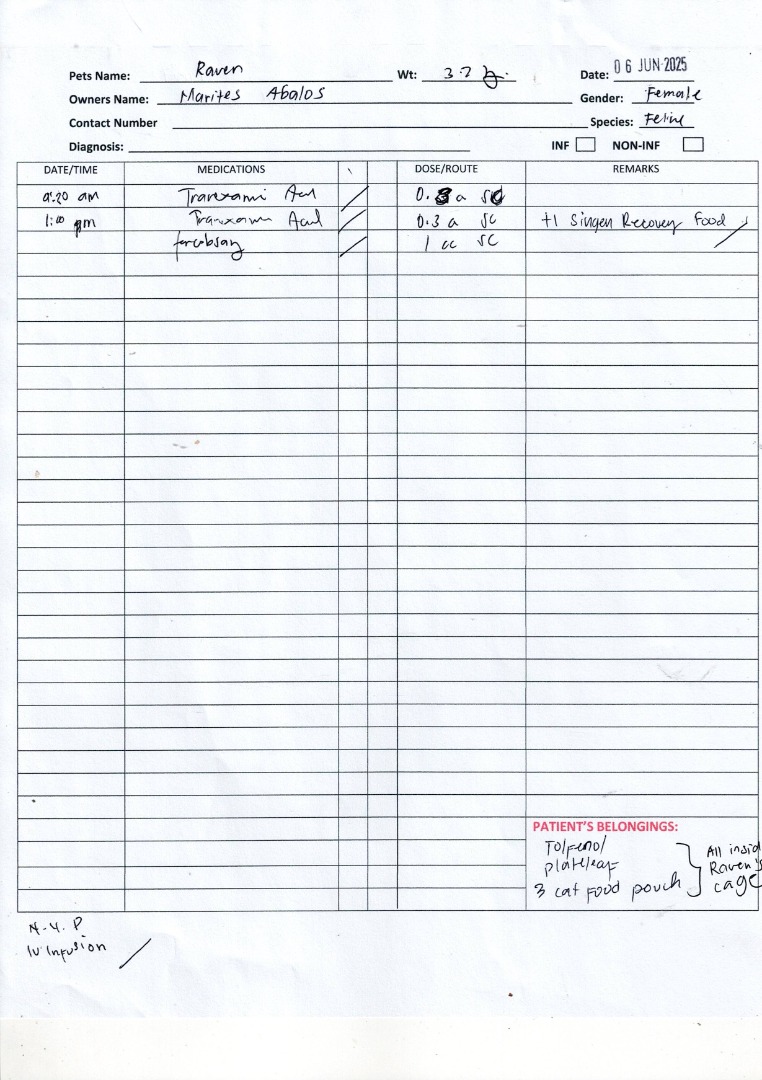 Pets Name: Raven Wt: 3.2 Date: 06 JUN 2025
Owners Name: Marites Abalos Gender: Female
Contact Number Species: Feline
Diagnosis: INF NON-INF
DATE/TIME MEDICATIONS DOSE/ROUTE REMARKS
9:20 am 0.3 SC
1:00 pm 0.3 SC +1 Singen Recovery Food
1 cc SC
PATIENT'S BELONGINGS:
Tolfenol
plateleaf
3 cat food pouch
All insid
Raven's
cage
IV Infusion